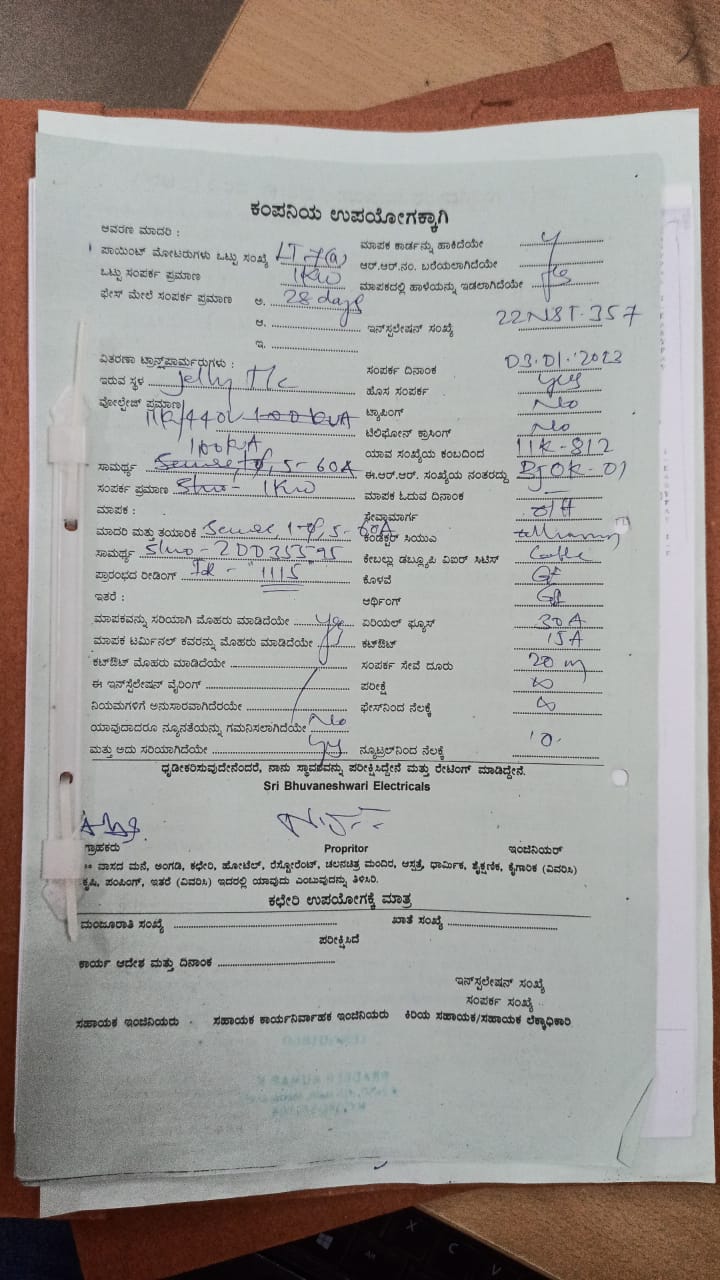 ಕಂಪನಿಯ ಉಪಯೋಗಕ್ಕಾಗಿ
ಆವರಣ ಮಾದರಿ :
ಪಾಯಿಂಟ್ ಮೋಟರುಗಳು ಒಟ್ಟು ಸಂಖ್ಯೆ LT 7(a)
ಒಟ್ಟು ಸಂಪರ್ಕ ಪ್ರಮಾಣ 1KW
ಫೇಸ್ ಮೇಲೆ ಸಂಪರ್ಕ ಪ್ರಮಾಣ ಅ. 28 days
ಆ.
ಇ.
ಮಾಪಕ ಕಾರ್ಡನ್ನು ಹಾಕಿದೆಯೇ y
ಆರ್.ಆರ್.ನಂ. ಬರೆಯಲಾಗಿದೆಯೇ
ಮಾಪಕದಲ್ಲಿ ಹಾಳೆಯನ್ನು ಇಡಲಾಗಿದೆಯೇ yes
ಇನ್‌ಸ್ಟಲೇಷನ್ ಸಂಖ್ಯೆ 22NST.357
ವಿತರಣಾ ಟ್ರಾನ್ಸ್‌ಫಾರ್ಮರುಗಳು :
ಇರುವ ಸ್ಥಳ Jelly M/c
ವೋಲ್ಟೇಜ್ ಪ್ರಮಾಣ 11K/440V 100 KVA
100KVA
ಸಾಮರ್ಥ್ಯ 5-60A
ಸಂಪರ್ಕ ಪ್ರಮಾಣ Slno - 1KW
ಮಾಪಕ :
ಮಾದರಿ ಮತ್ತು ತಯಾರಿಕೆ 1-φ, 5-60A
ಸಾಮರ್ಥ್ಯ Slno -
ಪ್ರಾರಂಭದ ರೀಡಿಂಗ್ "1115"
ಸಂಪರ್ಕ ದಿನಾಂಕ 03.01.2023
ಹೊಸ ಸಂಪರ್ಕ yes
ಟ್ಯಾಪಿಂಗ್ No
ಟೆಲಿಫೋನ್ ಕ್ರಾಸಿಂಗ್ No
ಯಾವ ಸಂಖ್ಯೆಯ ಕಂಬದಿಂದ 11K-812
ಈ.ಆರ್.ಆರ್. ಸಂಖ್ಯೆಯ ನಂತರದ್ದು
ಮಾಪಕ ಓದುವ ದಿನಾಂಕ —
ಸೇವ್ಯಾಮಾರ್ಗ O/H
ಕಂಡಕ್ಟರ್ ಸಿಯುಎ
ಕೇಬಲ್ಲು ಡಬ್ಲ್ಯೂಪಿ ವಿಐರ್ ಸಿಟಿಸ್ Cable
ಕೊಳವೆ GI
ಇತರೆ :
ಮಾಪಕವನ್ನು ಸರಿಯಾಗಿ ಮೊಹರು ಮಾಡಿದೆಯೇ yes
ಮಾಪಕ ಟರ್ಮಿನಲ್ ಕವರನ್ನು ಮೊಹರು ಮಾಡಿದೆಯೇ
ಕಟ್‌ಔಟ್ ಮೊಹರು ಮಾಡಿದೆಯೇ
ಈ ಇನ್‌ಸ್ಟಲೇಷನ್ ವೈರಿಂಗ್
ನಿಯಮಗಳಿಗೆ ಅನುಸಾರವಾಗಿದೆರಯೇ
ಯಾವುದಾದರೂ ನ್ಯೂನತೆಯನ್ನು ಗಮನಿಸಲಾಗಿದೆಯೇ No
ಮತ್ತು ಅದು ಸರಿಯಾಗಿದೆಯೇ yes
ಆರ್ಥಿಂಗ್ GI
ಏರಿಯಲ್ ಫ್ಯೂಸ್ 30A
ಕಟ್‌ಔಟ್ 15A
ಸಂಪರ್ಕ ಸೇವೆ ದೂರು 20 m
ಪರೀಕ್ಷೆ ∞
ಫೇಸ್‌ನಿಂದ ನೆಲಕ್ಕೆ ∞
ನ್ಯೂಟ್ರಲ್‌ನಿಂದ ನೆಲಕ್ಕೆ '0'
ಧೃಡೀಕರಿಸುವುದೇನೆಂದರೆ, ನಾನು ಸ್ಥಾವರವನ್ನು ಪರೀಕ್ಷಿಸಿದ್ದೇನೆ ಮತ್ತು ರೇಟಿಂಗ್ ಮಾಡಿದ್ದೇನೆ.
Sri Bhuvaneshwari Electricals
ಗ್ರಾಹಕರು Propritor ಇಂಜಿನಿಯರ್
** ವಾಸದ ಮನೆ, ಅಂಗಡಿ, ಕಛೇರಿ, ಹೋಟೆಲ್, ರೆಸ್ಟೋರೆಂಟ್, ಚಲನಚಿತ್ರ ಮಂದಿರ, ಆಸ್ಪತ್ರೆ, ಧಾರ್ಮಿಕ, ಶೈಕ್ಷಣಿಕ, ಕೈಗಾರಿಕ (ವಿವರಿಸಿ)
ಕೃಷಿ, ಪಂಪಿಂಗ್, ಇತರೆ (ವಿವರಿಸಿ) ಇದರಲ್ಲಿ ಯಾವುದು ಎಂಬುವುದನ್ನು ತಿಳಿಸಿರಿ.
ಕಛೇರಿ ಉಪಯೋಗಕ್ಕೆ ಮಾತ್ರ
ಮಂಜೂರಾತಿ ಸಂಖ್ಯೆ ಖಾತೆ ಸಂಖ್ಯೆ
ಪರೀಕ್ಷಿಸಿದೆ
ಕಾರ್ಯ ಆದೇಶ ಮತ್ತು ದಿನಾಂಕ
ಇನ್‌ಸ್ಟಲೇಷನ್ ಸಂಖ್ಯೆ
ಸಂಪರ್ಕ ಸಂಖ್ಯೆ
ಸಹಾಯಕ ಇಂಜಿನಿಯರು ಸಹಾಯಕ ಕಾರ್ಯನಿರ್ವಾಹಕ ಇಂಜಿನಿಯರು ಕಿರಿಯ ಸಹಾಯಕ/ಸಹಾಯಕ ಲೆಕ್ಕಾಧಿಕಾರಿ